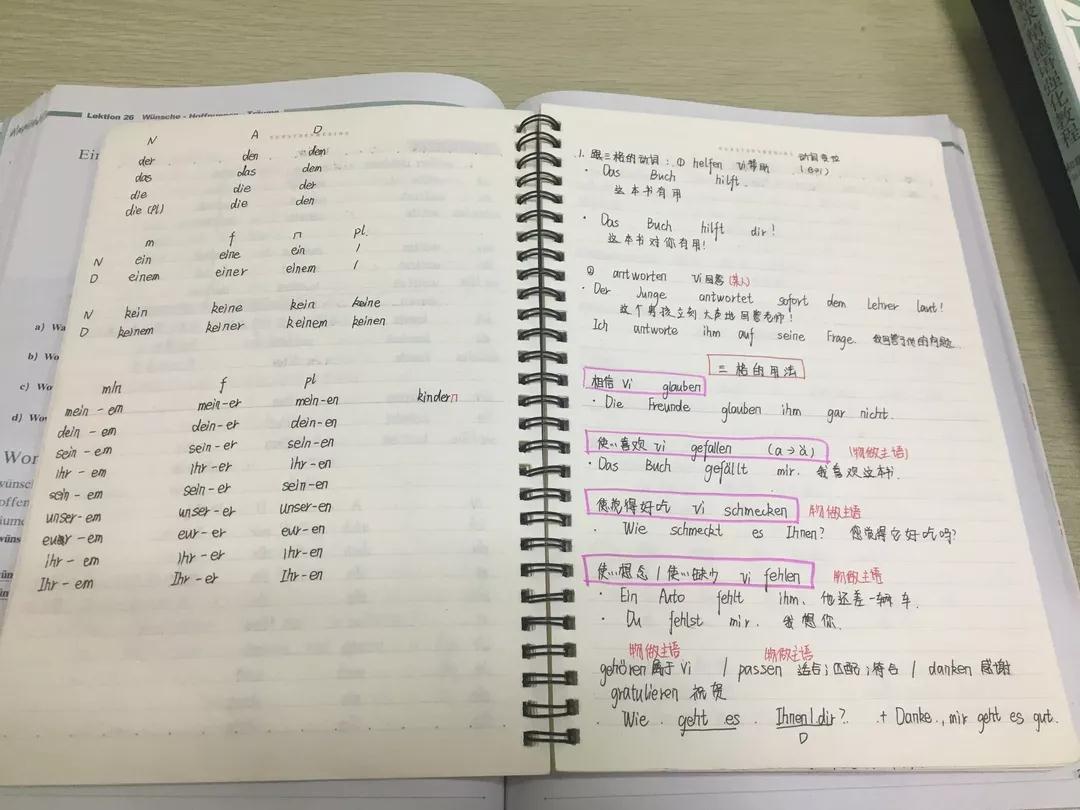 Lektion 26 Wünsche - Hoffnungen - Träume
Ein
a) Wa
b) Wo
c) Wo
d) Wo
Wor
N A D
der den dem
das das dem
die die der
die (Pl) die den
m f n pl.
N ein eine ein /
D einem einer einem /
N kein keine kein keine
D keinem keiner keinem keinen
m/n f pl
mein - em mein-er mein-en kindern
dein - em dein-er dein-en
sein - em sein-er sein-en
ihr - em ihr-er ihr-en
sein - em sein-er sein-en
unser-em unser-er unser-en
euer-em eur-er eur-en
ihr - em ihr-er ihr-en
Ihr-em Ihr-er Ihr-en
1. 跟三格的动词: ① helfen vi 帮助 动词变位
(e→i)
· Das Buch hilft.
这本书有用
· Das Buch hilft dir!
这本书对你有用!
② antworten vi 回答 (某人)
· Der Junge antwortet sofort dem Lehrer laut!
这个男孩立刻大声地回答老师!
Ich antworte ihm auf seine Frage. 我回答了他的问题.
三格的用法
相信 vi glauben
· Die Freunde glauben ihm gar nicht.
使...喜欢 vi gefallen (a→ä) (物做主语)
· Das Buch gefällt mir. 我喜欢这本书.
使觉得好吃 vi schmecken 物做主语
· Wie schmeckt es Ihnen? 您觉得它好吃吗?
使...想念 / 使...缺少 vi fehlen 物做主语
· Ein Auto fehlt ihm. 他还差一辆车.
· Du fehlst mir. 我想你.
物做主语 物做主语
gehören 属于 vi / passen 适合;匹配;符合 / danken 感谢
gratulieren 祝贺
· Wie geht es Ihnen/dir? + Danke, mir geht es gut.
D